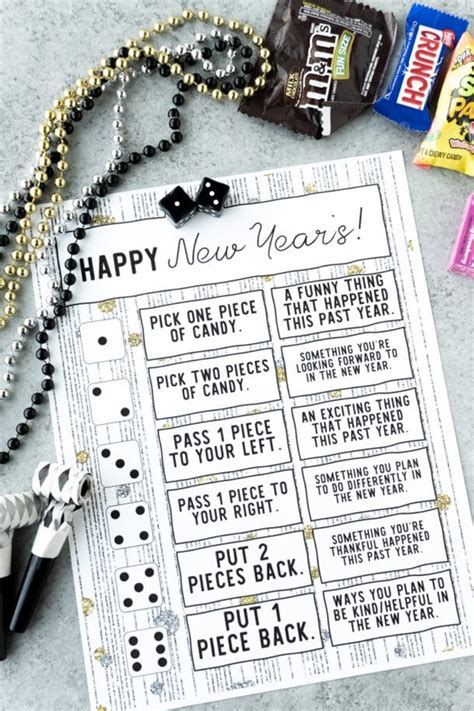 m&m's
MILK CHOCOLATE
FUN SIZE
CRUNCH
& CHEWY CANDY
HAPPY New Year's!
PICK ONE PIECE
OF CANDY.
A FUNNY THING
THAT HAPPENED
THIS PAST YEAR.
PICK TWO PIECES
OF CANDY.
SOMETHING YOU'RE
LOOKING FORWARD TO
IN THE NEW YEAR.
PASS 1 PIECE
TO YOUR LEFT.
AN EXCITING THING
THAT HAPPENED
THIS PAST YEAR.
PASS 1 PIECE TO
YOUR RIGHT.
SOMETHING YOU PLAN
TO DO DIFFERENTLY
IN THE NEW YEAR.
PUT 2
PIECES BACK.
SOMETHING YOU'RE
THANKFUL HAPPENED
THIS PAST YEAR.
PUT 1
PIECE BACK.
WAYS YOU PLAN TO
BE KIND/HELPFUL IN
THE NEW YEAR.